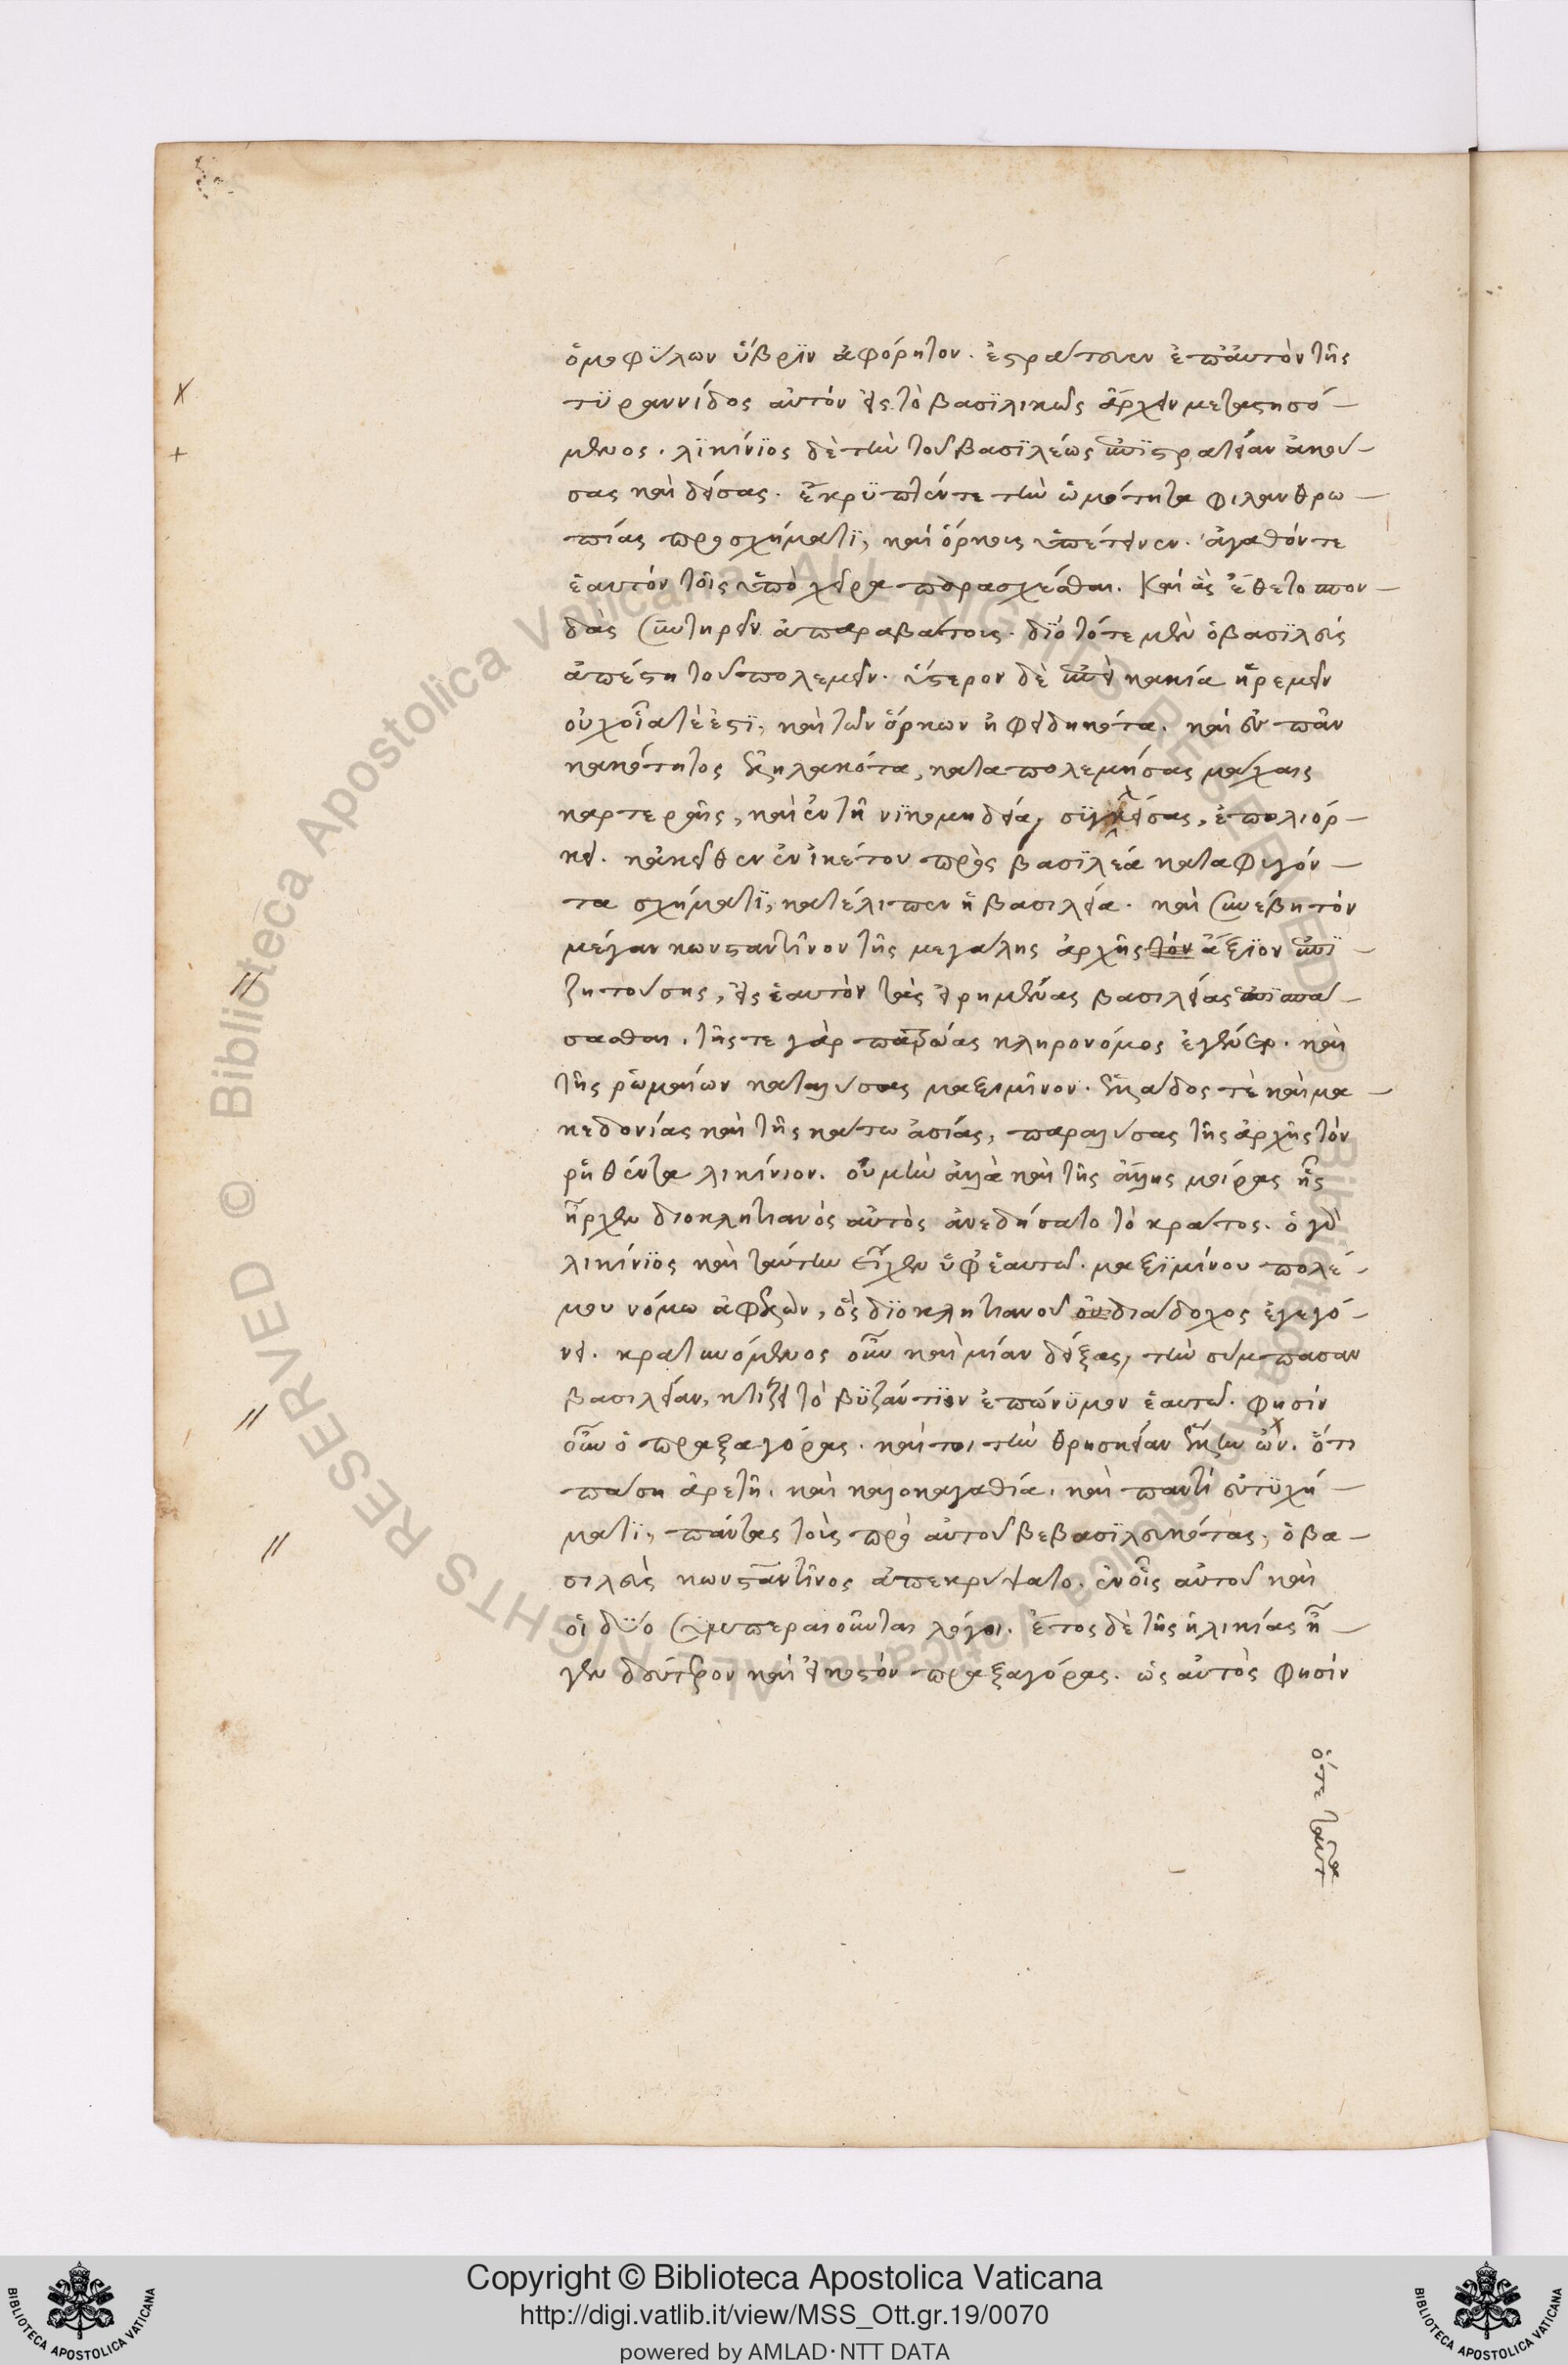 ὁμοφΰλων ὕβρϊν ἀφόρητον. ἐστράτευεν ἐπ' αὐτὸν τῆς
τϋραννίδος αὐτόν εἰς τὸ βασϊλικῶς ἄρχειν μεταστησό-
μενος. λϊκίνϊος δὲ τὴν τοῦ βασϊλέως ἐπϊστρατείαν ἀκού-
σας καὶ δείσας. ἔκρϋπτέν τε τὴν ὠμότητα φιλανθρω-
πίας προσχήματϊ, καὶ ὅρκοις ὑπέτεινεν. ἀγαθόν τε
ἑαυτόν τοῖς ὑπὸ χεῖρα παρασχέσθαι. Καὶ ἃς ἔθετο σπον-
δὰς συντηρεῖν ἀπαραβάτοις. δϊό τότε μὲν ὁ βασϊλεὺς
ἀπέστη τοῦ πολεμεῖν. ὕστερον δὲ ἐπεὶ κακία ἠρεμεῖν
οὐχ οἵα τέ ἐστϊ, καὶ τῶν ὅρκων ἠφειδηκότα. καὶ εἰς πᾶν
κακότητος ἐξηλακότα, καταπολεμήσας μάχαις
καρτεραῖς, καὶ ἐν τῇ νϊκομηδείᾳ, σϋγκλείσας, ἐπολιόρ-
κει. κἀκεῖθεν ἐν ἱκέτου πρὸς βασϊλέα καταφυγόν-
τα σχήματϊ, κατέλιπεν ἡ βασιλεία. καὶ συνέβη τὸν
μέγαν κωνσταντῖνον τῆς μεγάλης ἀρχῆς τὸν ἄξϊον ἐπϊ-
ζητούσης, εἰς ἑαυτὸν τὰς εἰρημένας βασιλείας ἐπϊσπά-
σασθαι. τῆς τε γὰρ πατρῴας κληρονόμος ἐγένετο. καὶ
τῆς ῥωμαίων καταλύσας μαξιμῖνον. ἑλλάδος τὲ καὶ μα-
κεδονίας καὶ τῆς κάτω ἀσίας, παραλύσας τῆς ἀρχῆς τόν
ῥηθέντα λικίνιον. οὐ μὴν ἀλλὰ καὶ τῆς ἄλλης μοίρας ἧς
ἦρχεν διοκλητιανὸς αὐτὸς ἀνεδήσατο τὸ κράτος. ὁ γὰρ
λικίνϊος καὶ ταύτην εἶχεν ὑφ' ἑαυτῷ. μαξϊμίνου πολέ-
μου νόμω ἀφελὼν, ὃς δϊοκλητιανοῦ διάδοχος ἐγεγό-
νει. κρατυνόμενος οὖν καὶ μίαν δείξας, τὴν σύμπασαν
βασιλείαν, κτίζει τὸ βϋζάντϊον ἐπώνϋμον ἑαυτῷ. φησὶν
οὖν ὁ πραξαγόρας. καίτοι τὴν θρησκείαν ἕλλην ὤν. ὅτι
πάσῃ ἀρετῇ. καὶ καλοκαγαθίᾳ. καὶ παντὶ εὐτϋχή-
ματϊ, πάντας τοὺς πρὸ αὐτοῦ βεβασϊλευκότας, ὁ βα-
σιλεὺς κωνσταντῖνος ἀπεκρύψατο. ἐν οἷς αὐτοῦ καὶ
οἱ δΰο συμπεραιοῦνται λόγοι. ἔτος δὲ τῆς ἡλικίας ἦ-
γεν δεύτερον καὶ εἰκοστόν πραξαγόρας. ὡς αὐτὸς φησίν
ὅτε ταῦτα
Copyright © Biblioteca Apostolica Vaticana
http://digi.vatlib.it/view/MSS_Ott.gr.19/0070
powered by AMLAD·NTT DATA